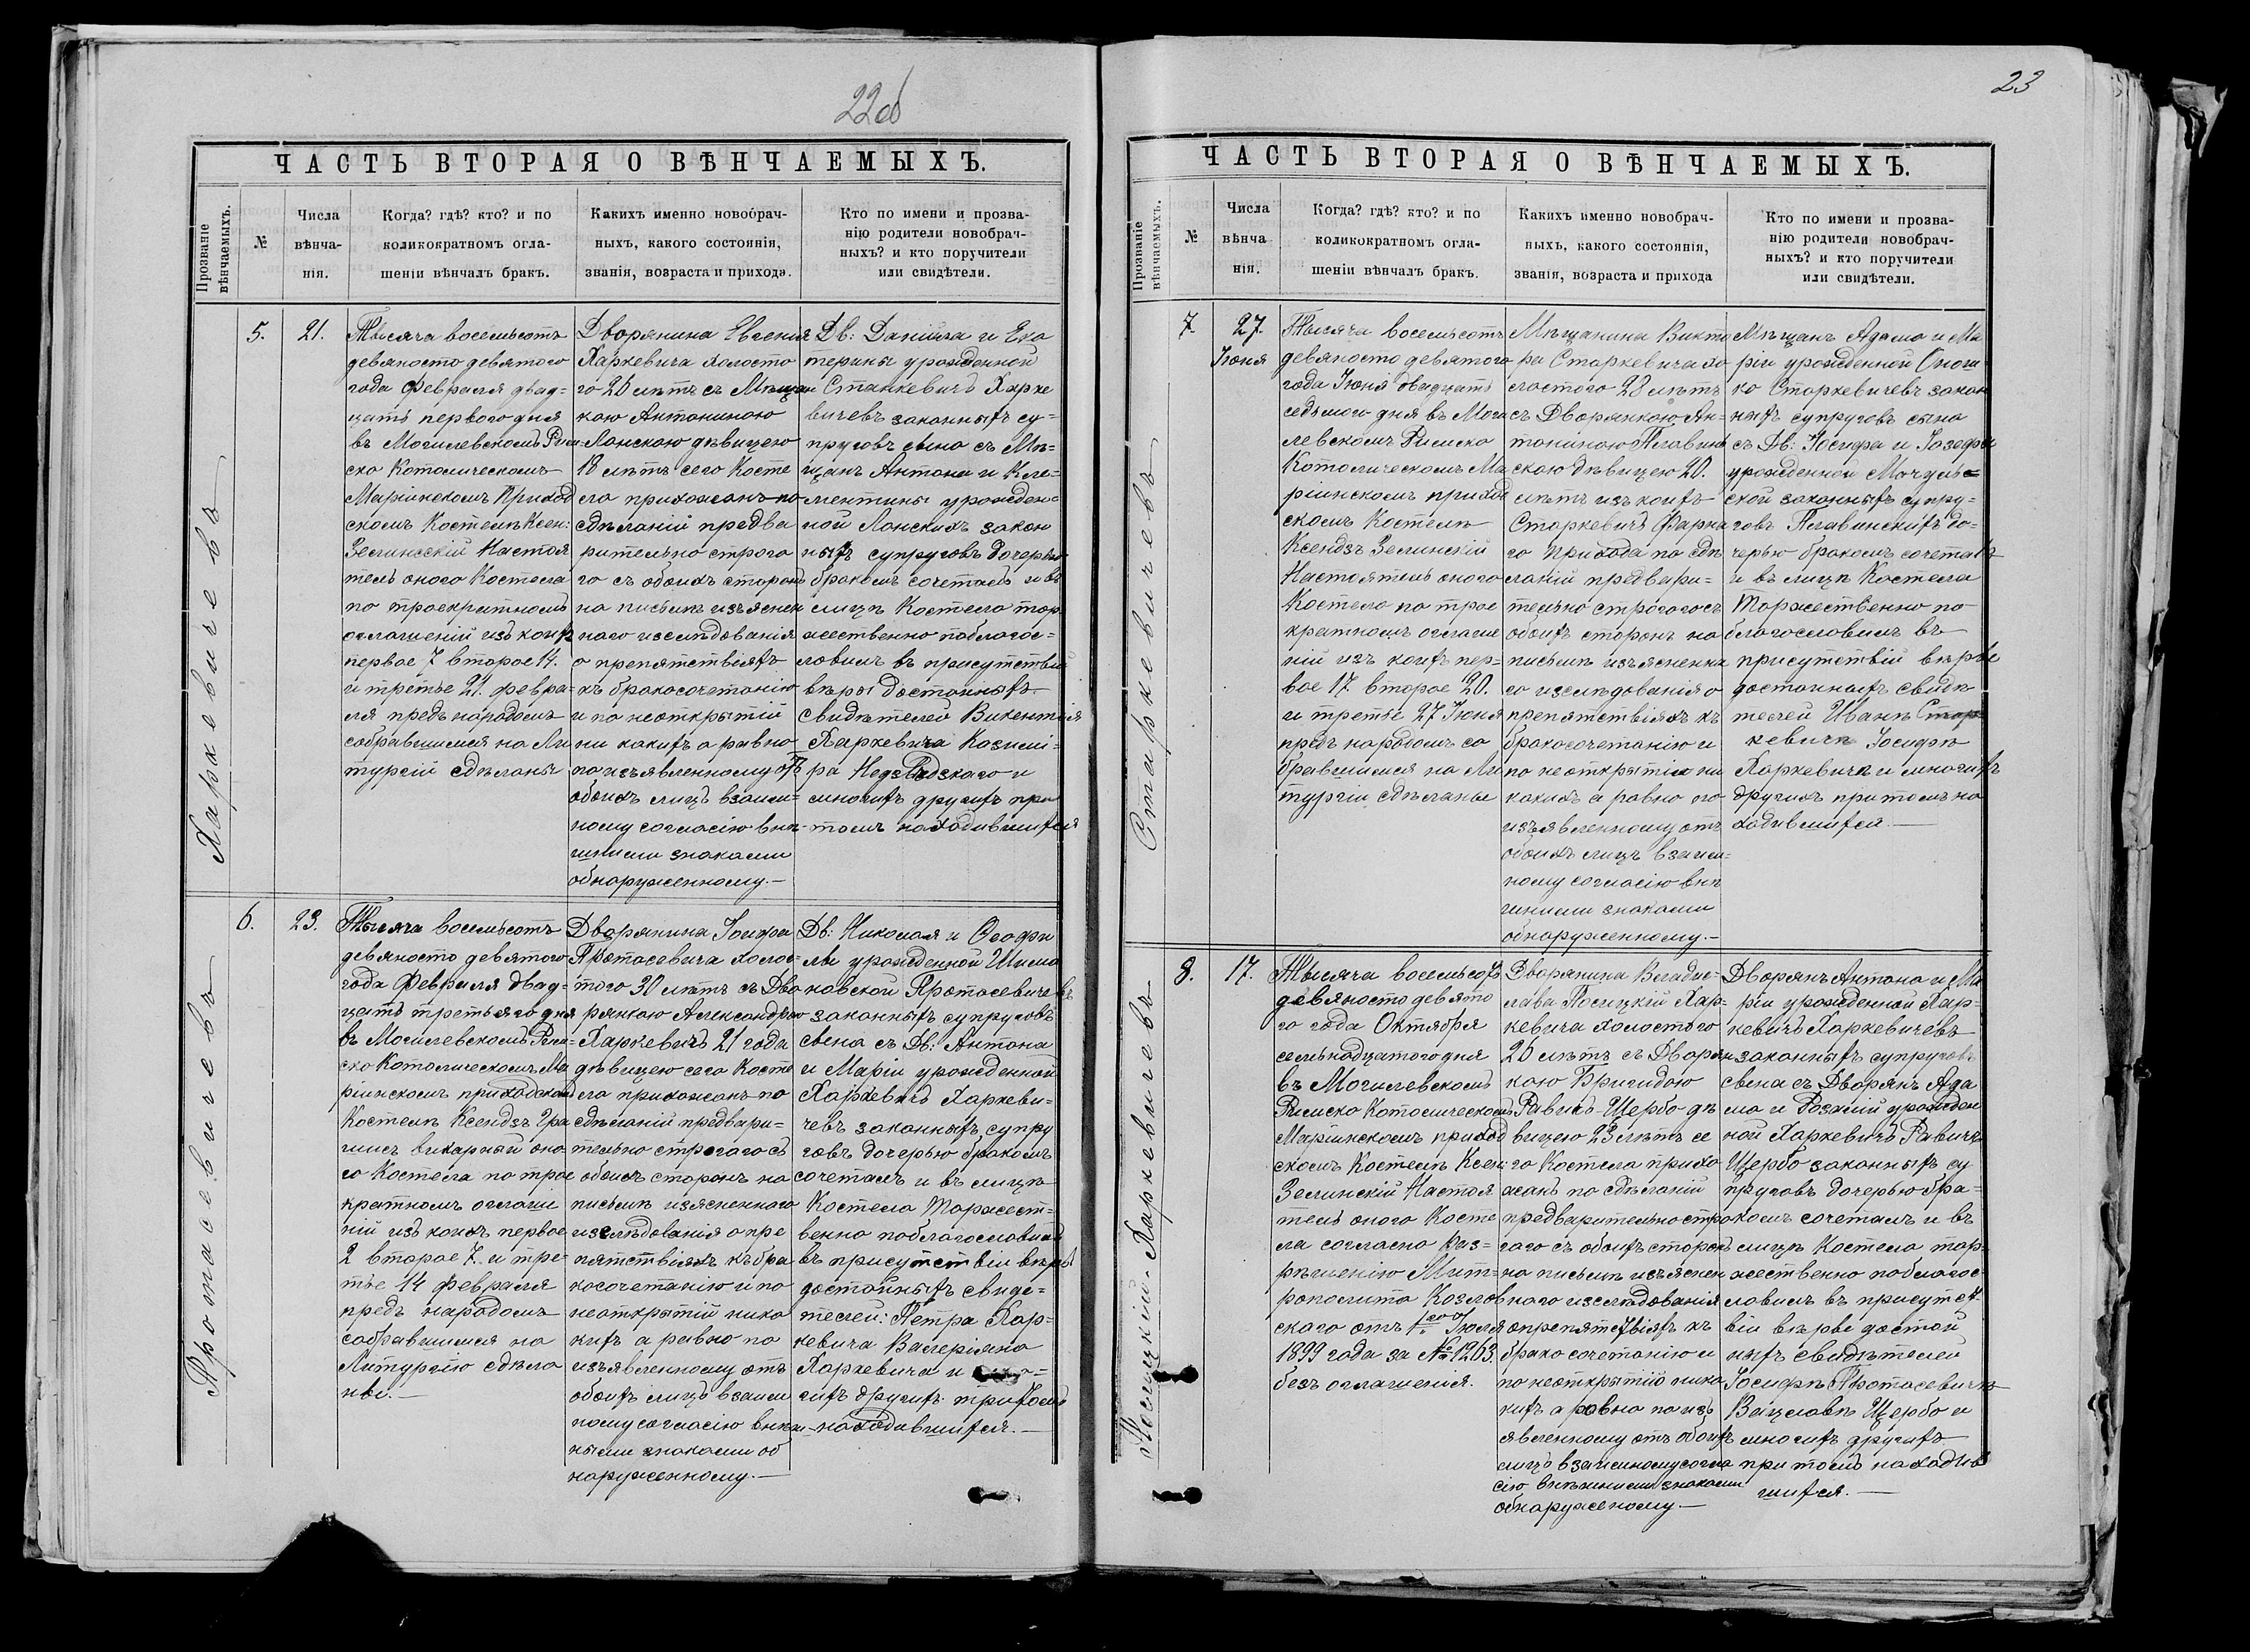 22об
ЧАСТЬ ВТОРАЯ О ВѢНЧАЕМЫХЪ.
Прозваніе
вѣнчаемыхъ.
№
Числа
вѣнча-
нія.
Когда? гдѣ? кто? и по
коликократномъ огла-
шеніи вѣнчалъ бракъ.
Какихъ именно новобрач-
ныхъ, какого состоянія,
званія, возраста и прихода.
Кто по имени и прозва-
нію родители новобрач-
ныхъ? и кто поручители
или свидѣтели.
Харкевичевъ
5.
21.
Тысяча восемьсотъ
девяносто девятого
года Февраля двад-
цать первого дня
въ Могилевскомъ Рим-
ско Католическомъ
Маріинскомъ Приход
скомъ Костелѣ Ксен:
Зелинскій Настоя
тель оного Костела
по троекратномъ
оглашеніи изъ коихъ
первое 7 второе 14.
и третье 21. февра-
ля предъ народомъ
собравшимся на Ли
тургіи сдѣланы
Дворянина Евгенія
Харкевича холосто
го 26 лѣтъ съ Мѣщан
кою Антониною
Лонскою дѣвицею
18 лѣтъ сего Косте
ла прихожанъ по
сдѣланій предва
рительно строго
го съ обоихъ сторонъ
на письмѣ изъяснен
наго изслѣдованія
о препятствіяхъ
къ бракосочетанію
и по неоткрытій
ни какихъ а равно
по изъявленному отъ
обоихъ лицъ взаим-
ному согласію внѣ-
шними знаками
обнаруженному.—
Дв: Даніила и Ека
терины урожденной
Станкевичъ Харке
вичевъ законныхъ су-
пруговъ сына съ Мѣ-
щанъ Антона и Кле-
ментины урожден-
ной Лонскихъ закон
ныхъ супруговъ дочерью
бракомъ сочеталъ и въ
лицѣ Костела тор
жественно поблагос-
ловилъ въ присутствіи
вѣры достойныхъ
свидѣтелей Викентія
Харкевича Казимі-
ра Недзвядзкаго и
многихъ другихъ при
томъ находившихся
Протасевичевъ
6.
23.
Тысяча восемьсотъ
девяносто девятого
года Февраля двад-
цать третьяго дня
въ Могилевскомъ Рим-
ско Католическомъ Ма
ріинскомъ приходскомъ
Костелѣ Ксендзъ Гра
лисъ викарный оно-
го Костела по трое
кратномъ оглаше
ній изъ коихъ первое
2 второе 7. и тре-
тье 14 февраля
предъ народомъ
собравшимся на
Литургію сдѣла
ны.—
Дворянина Іосифа
Протасевича холос-
того 30 лѣтъ съ Дво
рянкою Александрою
Харкевичъ 21 года
дѣвицею сего Косте
ла прихожанъ по
сдѣланій предвари-
тельно строгаго съ
обоихъ сторонъ на
письмѣ изясненного
изслѣдованія о пре
пятствіяхъ къ бра
косочетанію и по
неоткрытій ника
кихъ а равно по
изъявленному отъ
обоихъ лицъ взаим
ному согласію внѣш-
ными знаками об
наруженному.—
Дв: Николая и Феофи
лы урожденной Шима
новской Протасевичевъ
законныхъ супруговъ
сына съ Дв: Антона
и Маріи урожденной
Харкевичъ Харкеви-
чевъ законныхъ супру
говъ дочерью бракомъ
сочеталъ и въ лицѣ
Костела Торжест-
венно поблагословилъ
въ присутствіи вѣры
достойныхъ свидѣ-
телей: Петра Хар-
кевича Валеріяна
Харкевича и мно-
гихъ другихъ притомъ
находившихся.—
23
ЧАСТЬ ВТОРАЯ О ВѢНЧАЕМЫХЪ.
Прозваніе
вѣнчаемыхъ.
№
Числа
вѣнча
нія.
Когда? гдѣ? кто? и по
коликократномъ огла-
шеніи вѣнчалъ бракъ.
Какихъ именно новобрач-
ныхъ, какого состоянія,
званія, возраста и прихода
Кто по имени и прозва-
нію родители новобрач-
ныхъ? и кто поручители
или свидѣтели.
Старкевичевъ
7.
27.
Іюня
Тысяча восемьсотъ
девяносто девятого
года Іюня двадцать
седьмого дня въ Моги
левскомъ Римско
Католическомъ Ма
ріинскомъ приход
скомъ Костелѣ
Ксендзъ Зелинскій
Настоятель оного
Костела по трое
кратномъ оглаше
ній изъ коихъ пер-
вое 17. второе 20.
и третье 27 Іюня
предъ народомъ со
бравшимся на Ли
тургіи сдѣланы
Мѣщанина Викто
ра Старкевича хо
лостого 28 лѣтъ
съ Дворянкою Ан-
тониною Плавин
скою дѣвицею 20.
лѣтъ изъ коихъ
Старкевичъ Фарна
го прихода по сдѣ
ланій предвари-
тельно строгого съ
обоихъ сторонъ на
письмѣ изъясненна
го изслѣдованія о
препятствіяхъ къ
бракосочетанію и
по неоткрытію ни
какихъ а равно по
изъявленному отъ
обоихъ лицъ взаим-
ному согласію внѣ
шними знаками
обнаруженному.—
Мѣщанъ Адама и Ма
ріи урожденной Онош
ко Старкевичевъ закон
ныхъ супруговъ сына
съ Дв: Іосифа и Іозефы
урожденной Мочуль-
ской законныхъ супру-
говъ Плавинскихъ до-
черью бракомъ сочеталъ
и въ лицѣ Костела
Торжественно по
благословилъ въ
присутствій вѣры
достойныхъ свидѣ
телей Иванѣ Стар-
кевичѣ Іосифѣ
Харкевичѣ и многихъ
другихъ притомъ на
ходившихся.—
Посицкій-Харкевичевъ
8.
17.
Тысяча восемьсотъ
девяносто девято
го года Октября
семьнадцатого дня
въ Могилевскомъ
Римско Католическомъ
Маріинскомъ приход
скомъ Костелѣ Ксен:
Зелинскій Настоя
тель оного Косте
ла согласно раз-
рѣшенію Мит-
рополита Козлов
скаго отъ 1го Іюля
1899 года за № 1263.
безъ оглашенія.
Дворянина Владис-
лава Посицкій Хар-
кевича холостого
26 лѣтъ съ Дворян
кою Бригидою
Равичъ-Щербо дѣ
вицею 23 лѣтъ се
го Костела прихо
жанъ по сдѣланій
предварительно стро
гаго съ обоихъ сторонъ
на письмѣ изъяснен
наго изслѣдованія
о препятствіяхъ къ
брако сочетанію и
по неоткрытію ника
кихъ а равно по изъ
явленному отъ обоихъ
лицъ взаимному согла
сію внѣшними знаками
обнаруженому—
Дворянъ Антона и Ма
ріи урожденной Хар-
кевичъ Харкевичевъ
законныхъ супруговъ
сына съ Дворянъ Ада
ма и Розалій урожден
ной Харкевичъ Равичъ
Щербо законныхъ су
пруговъ дочерью бра-
комъ сочеталъ и въ
лицѣ Костела тор-
жественно поблагос-
ловилъ въ присутст-
віи вѣры достой
ныхъ свидѣтелей
Іосифѣ Протасевичѣ
Вацлавѣ Щербо и
многихъ другихъ
при томъ находив
шихся.—